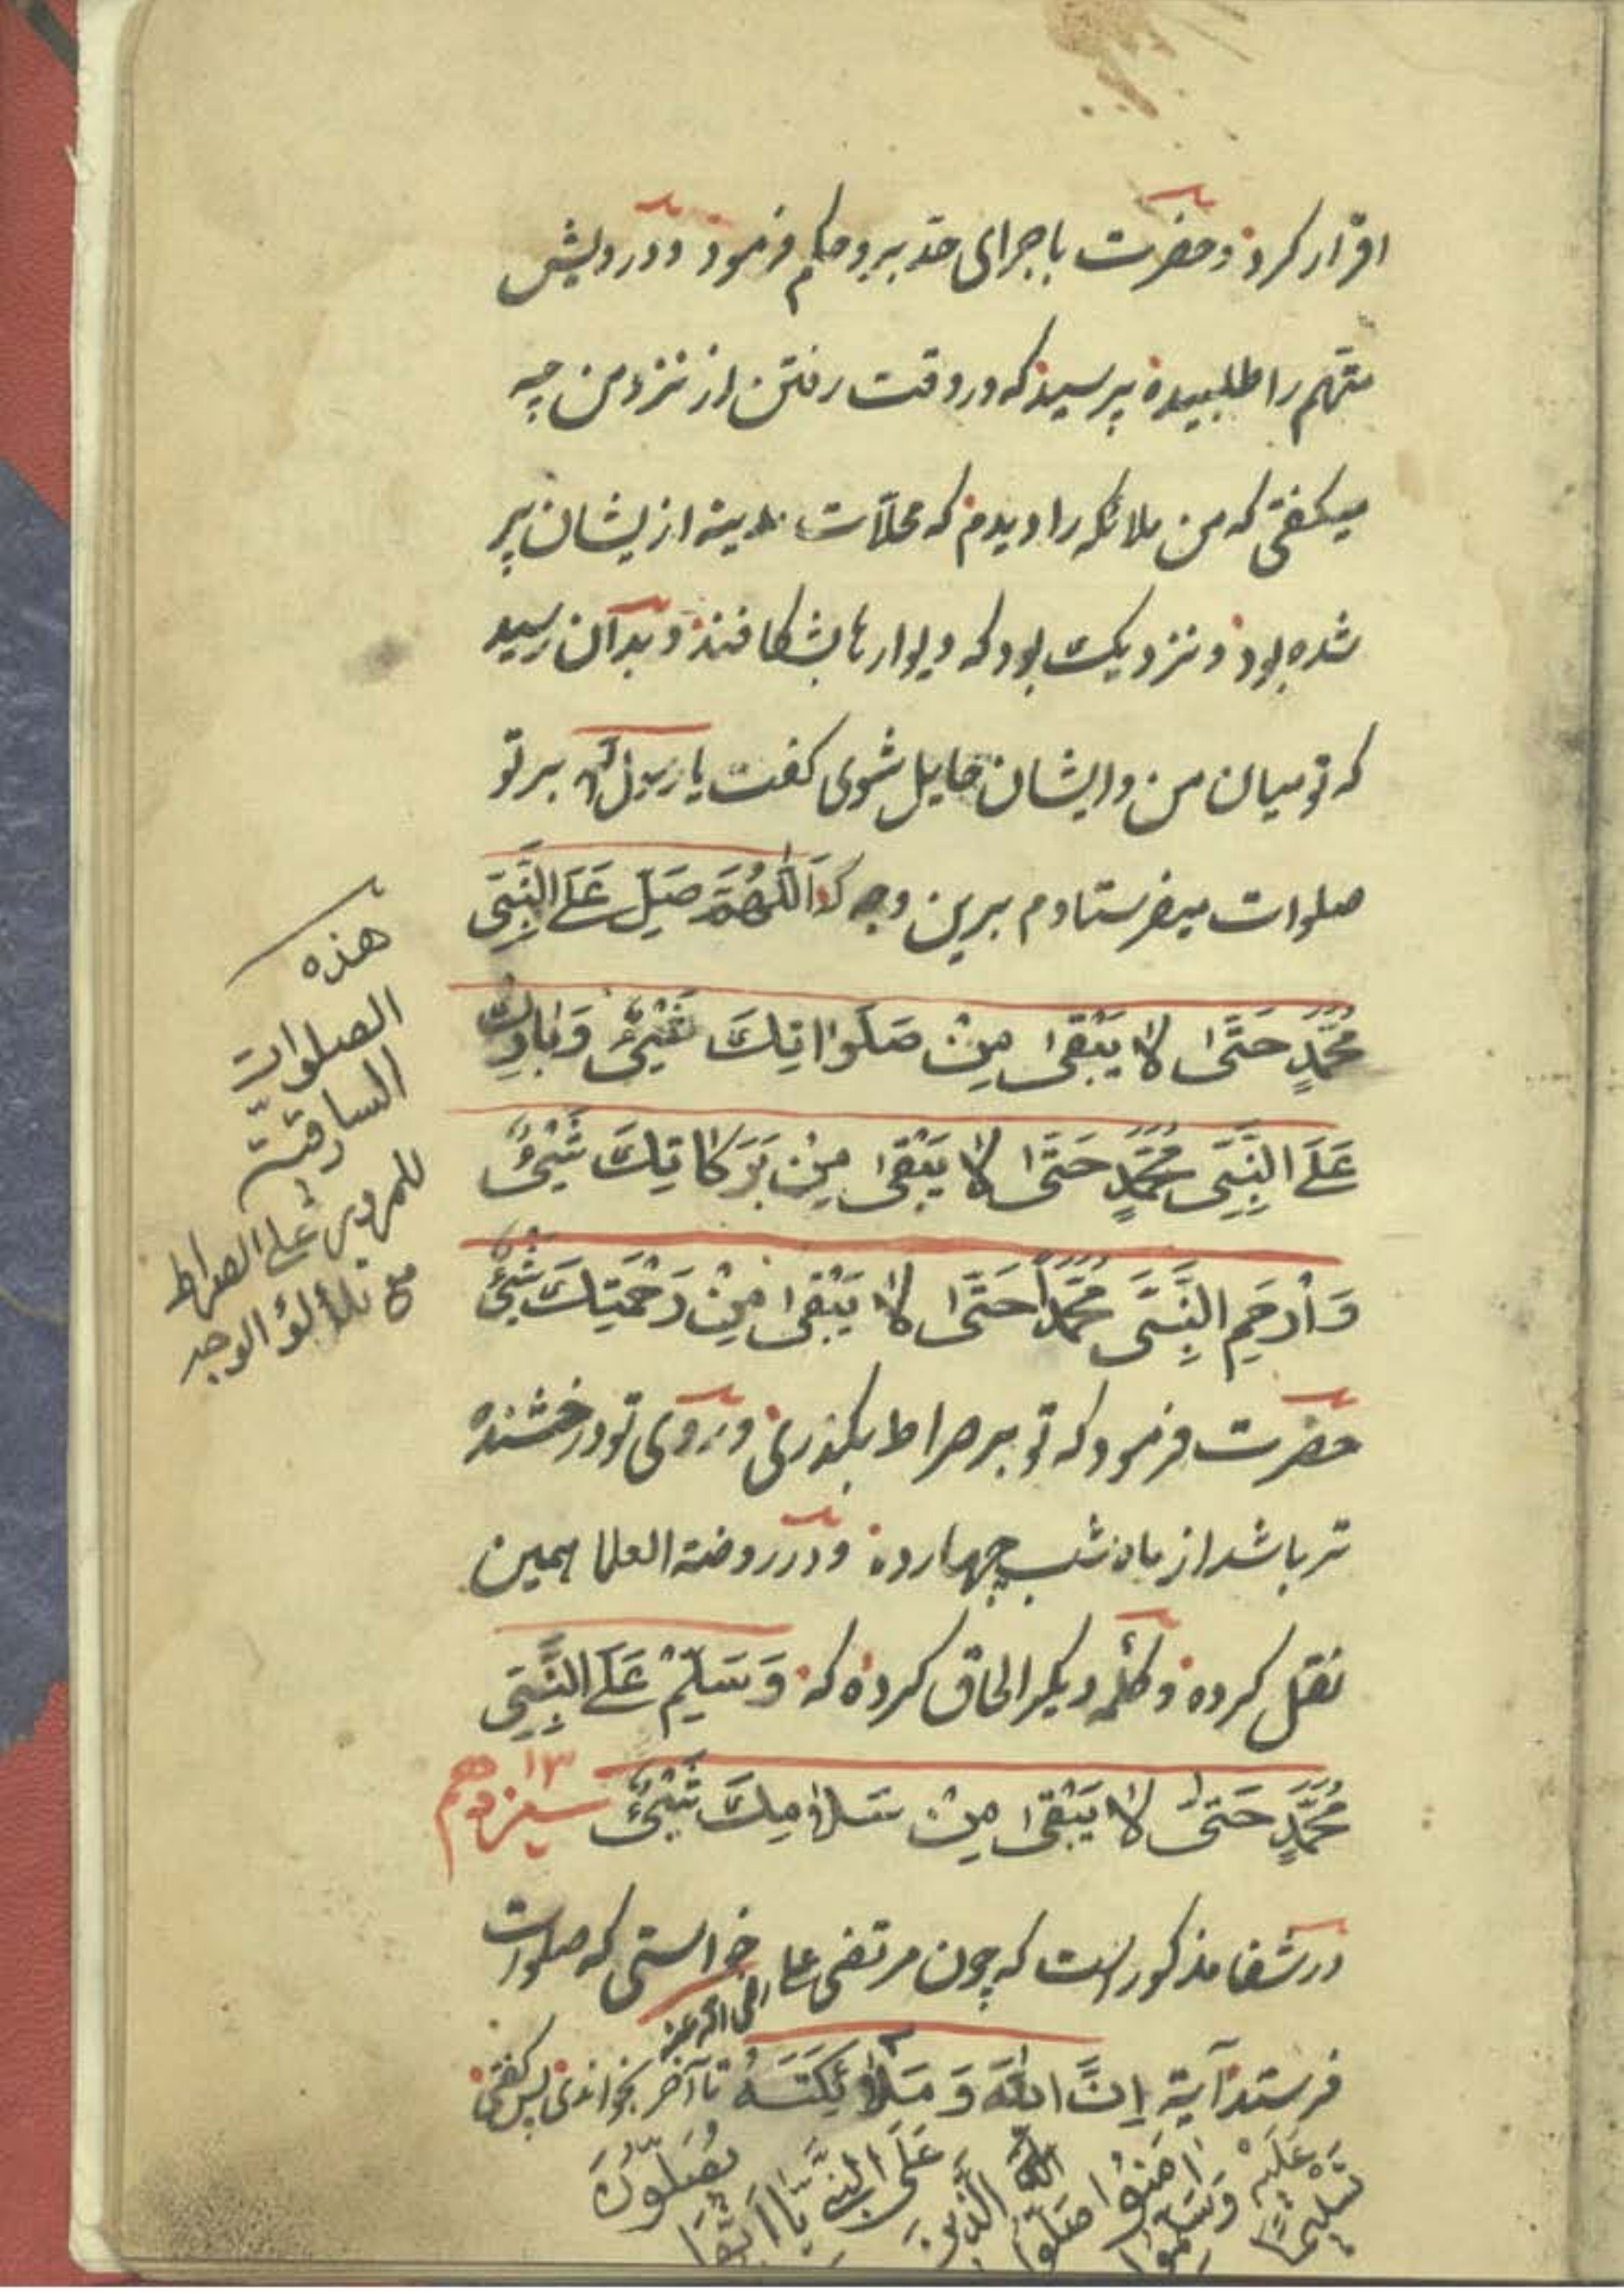 اقرار کرد و حضرت باجرای حد برو حکم فرمود و درویش
متهم را طلبیده پرسید که در وقت رفتن از نزد من چه
میکفتی که من ملائکه را دیدم که محلّات مدینه ازیشان پر
شده بود و نزدیک بود که دیوارها بشکافند و بدآن رسید
که تو میان من و ایشان حایل شوی کفت یا رسول الله بر تو
صلوات میفرستادم برین وجه که اَللّٰهُمَّ صَلِّ عَلَی النَّبِیِّ
مُحَمَّدٍ حَتّٰی لَا یَبْقٰی مِنْ صَلَوَاتِكَ شَیْئٌ وَبَارِكْ
عَلَی النَّبِیِّ مُحَمَّدٍ حَتّٰی لَا یَبْقٰی مِنْ بَرَكَاتِكَ شَیْئٌ
وَارْحَمِ النَّبِیَّ مُحَمَّداً حَتّٰی لَا یَبْقٰی مِنْ رَحْمَتِكَ شَیْئٌ
حضرت فرمود که تو بر صراط بکذری و روی تو درخشنده
تر باشد از ماه شب چهارده و در روضة العلما همین
نقل کرده و کلمه دیکر الحاق کرده که وَسَلِّمْ عَلَی النَّبِیِّ
مُحَمَّدٍ حَتّٰی لَا یَبْقٰی مِنْ سَلَامِكَ شَیْئٌ سیزدهم ۱۳
در شفا مذکور است که چون مرتضی علی رضی الله عنه خواستی که صلوات
فرستد آیة اِنَّ اللّٰهَ وَمَلٰئِكَتَهُ تا آخر بخواندی پس کفتی
یُصَلُّونَ عَلَی النَّبِیِّ یَا اَیُّهَا الَّذِینَ اٰمَنُوا صَلُّوا عَلَیْهِ وَسَلِّمُوا تَسْلِیمًا
هذه
الصلوات
السارقیّة
للمرور علی الصراط
مع تلألؤ الوجه